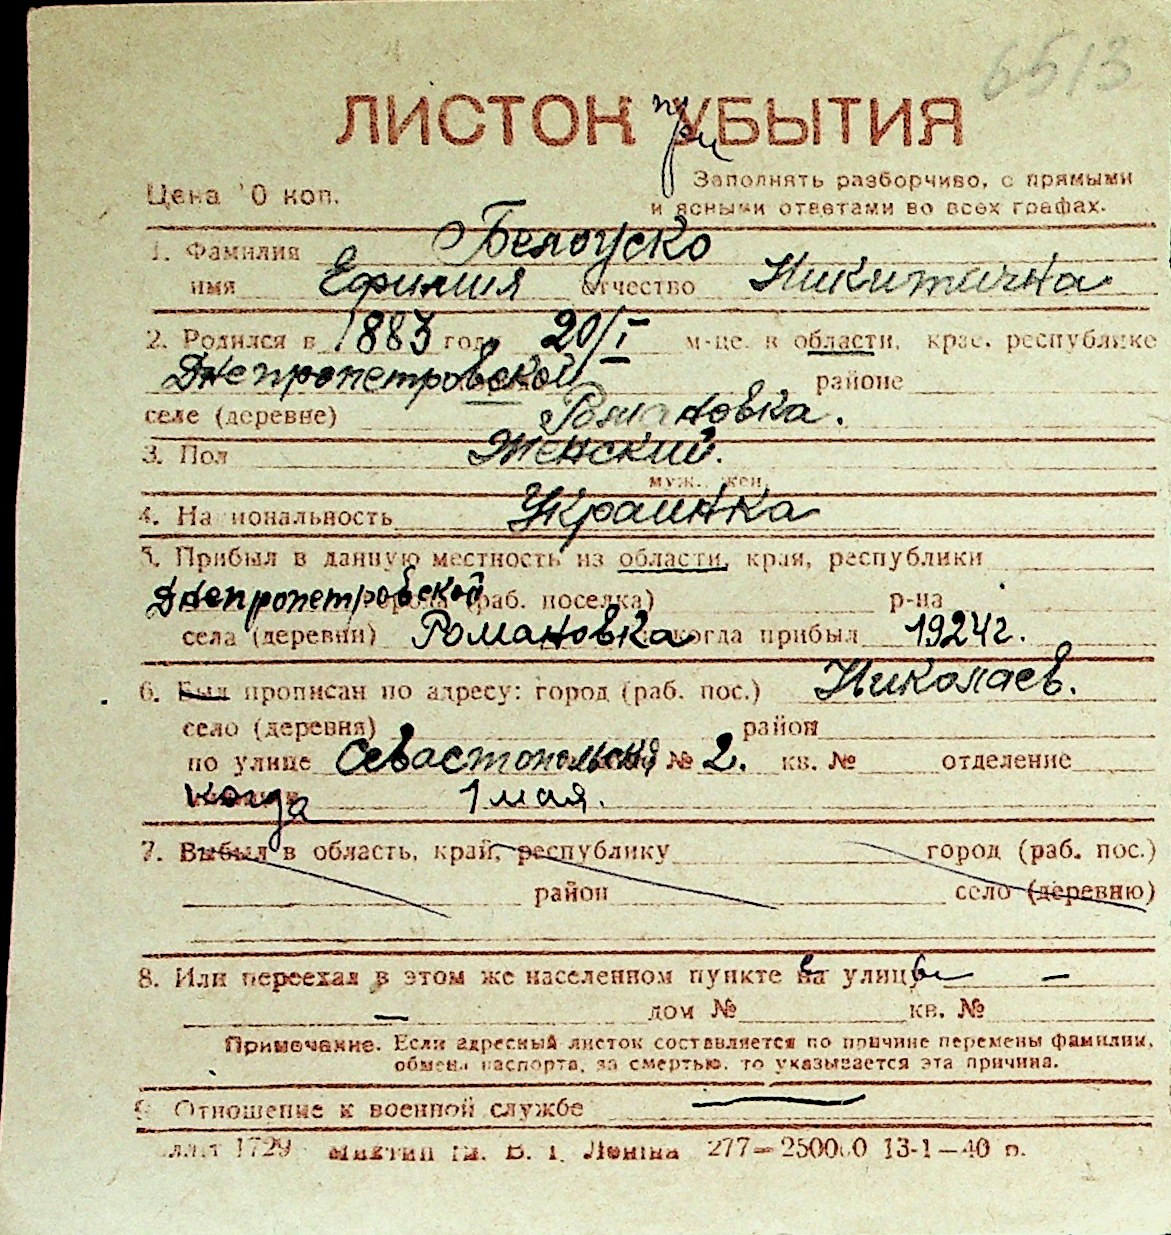 6513
ЛИСТОК при УБЫТИЯ
Цена 10 коп.
Заполнять разборчиво, с прямыми
и ясными ответами во всех графах.
1. Фамилия Белоуско
имя Ефимия отчество Никитична
2. Родился в 1883 году 20/I м-це в области, крае, республике
Днепропетровской районе
селе (деревне) Романовка.
3. Пол Женский.
муж., жен.
4. Национальность Украинка
5. Прибыл в данную местность из области, края, республики
Днепропетровской города (раб. поселка) р-на
села (деревни) Романовка и когда прибыл 1924 г.
6. Был прописан по адресу: город (раб. пос.) Николаев.
село (деревня) район
по улице Севастопольская № 2. кв. № отделение
когда 1 мая.
7. Выбыл в область, край, республику город (раб. пос.)
район село (деревню)
8. Или переехал в этом же населенном пункте на улицы —
— дом № кв. №
Примечание. Если адресный листок составляется по причине перемены фамилии,
обмена паспорта, за смертью, то указывается эта причина.
9. Отношение к военной службе —
1729 им. В. И. Ленина 277—250000 13-1—40 г.